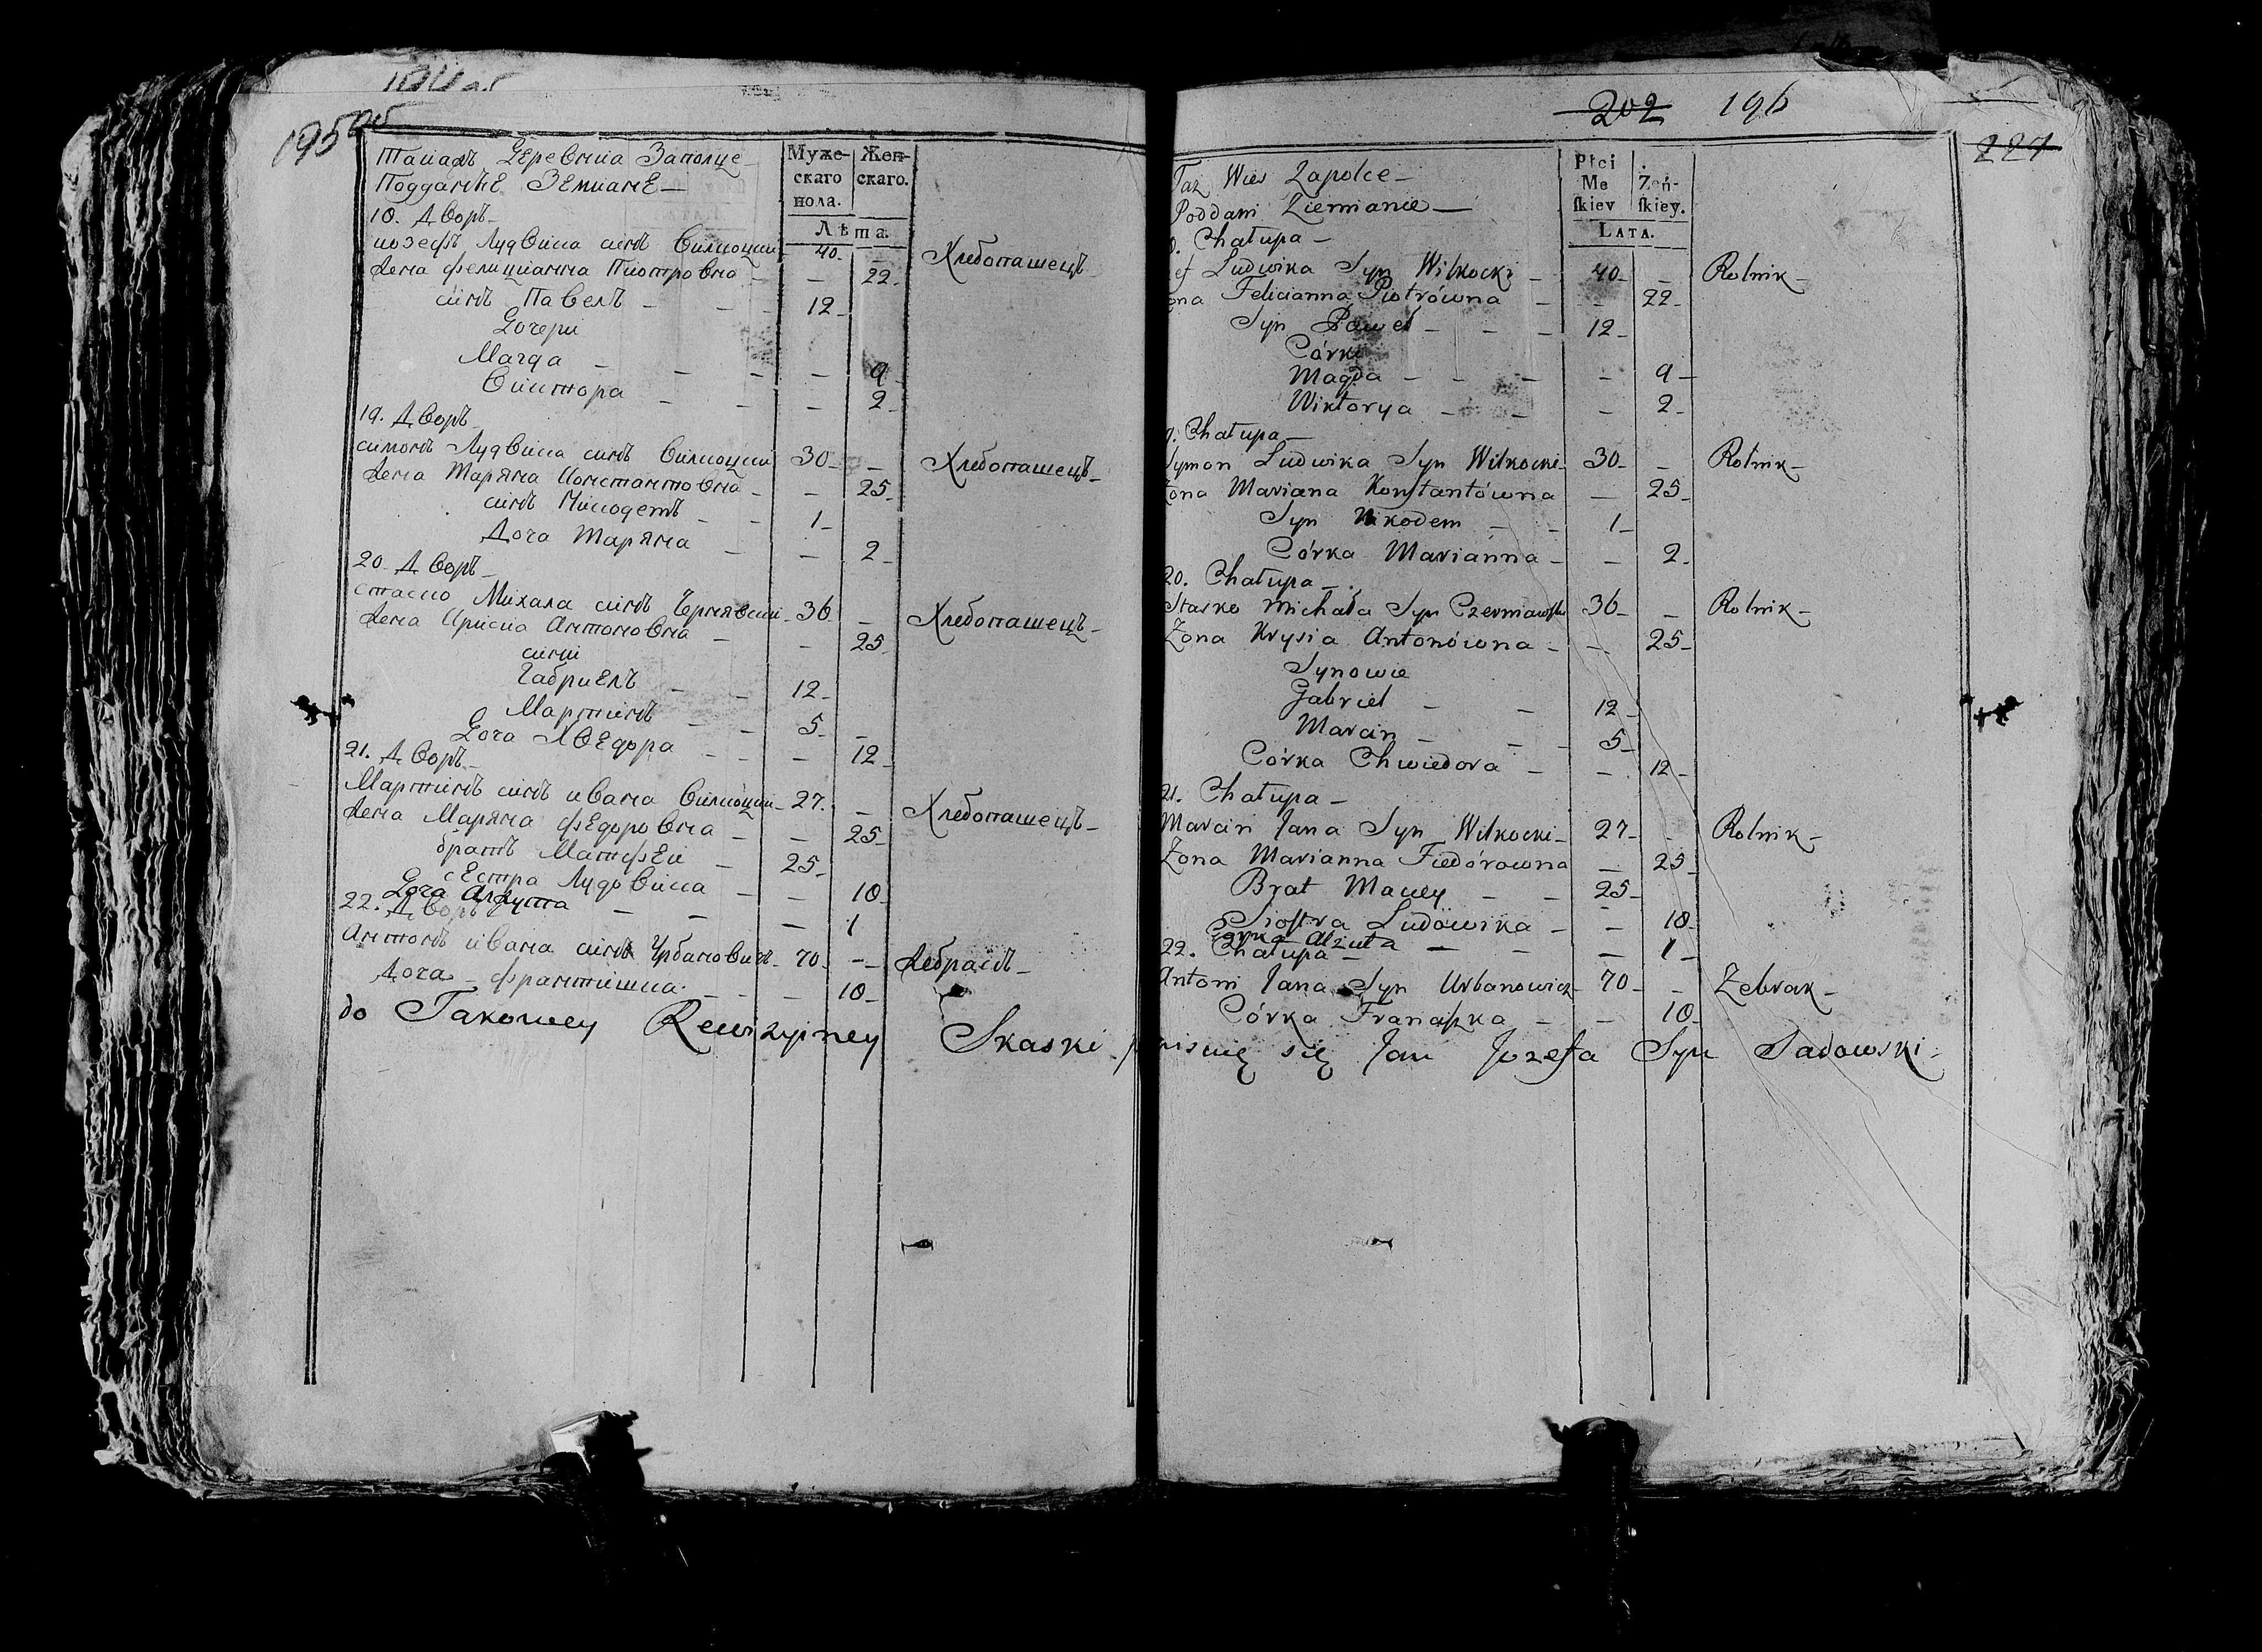 195 об
Такаяжъ Деревниа Заполце
Подданые Земиане
Муже-
скаго
пола.
Жен-
скаго.
Лѣта.
18. Дворъ
иозефъ Лудвика синъ Вилкоцки 40 — Хлебопашецъ
жена фелицианна Пиотровна — 22
синъ Павелъ 12
Дочери
Магда — 9
Виктора — 2
19. Дворъ
симонъ Лудвика синъ Вилкоцки 30 — Хлебопашецъ
жена Маряна Константовна — 25
синъ Никодемъ 1
Доча Маряна — 2
20. Дворъ
стаско Михала синъ Чрнявски 36 — Хлебопашецъ
жена Крисиа Антоновна — 25
сини
Габриелъ 12
Мартинъ 5
Доча Хведора — 12
21. Дворъ
Мартинъ синъ ивана Вилкоцки 27 — Хлебопашецъ
жена Маряна федоровна — 25
братъ Матфеи 25
сестра Лудовика — 10
Доча Алжута — 1
22. Дворъ
Антонъ ивана синъ Урбановичъ 70 — Жебракъ
Доча франтишка — 10
202 196
227
Taż Wieś Zapolce
Poddani Ziemianie
Płci
Me
skiey
Żeń-
skiey.
LATA.
Chałupa
Ludwika Syn Wilkocki 40 — Rolnik
Felicianna Piotrówna — 22
Syn Paweł 12
Córki
Magda — 9
Wiktorya — 2
Chałupa
Symon Ludwika Syn Wilkocki 30 — Rolnik
Żona Mariana Konstantówna — 25
Syn Nikodem 1
Córka Marianna — 2
20. Chałupa
Stasko Michała Syn Czerniawski 36 — Rolnik
Żona Krysia Antonówna — 25
Synowie
Gabriel 12
Marcin 5
Córka Chwiedora — 12
21. Chałupa
Marcin Jana Syn Wilkocki 27 — Rolnik
Żona Marianna Fiedórowna — 25
Brat Maciey 25
Siostra Ludowika — 10
Córka Alżuta — 1
22. Chałupa
Antoni Jana Syn Urbanowicz 70 — Żebrak
Córka Franciszka — 10
do Takowey Rewizyiney Skaski pisuię się Jan Jozefa Syn Sadowski